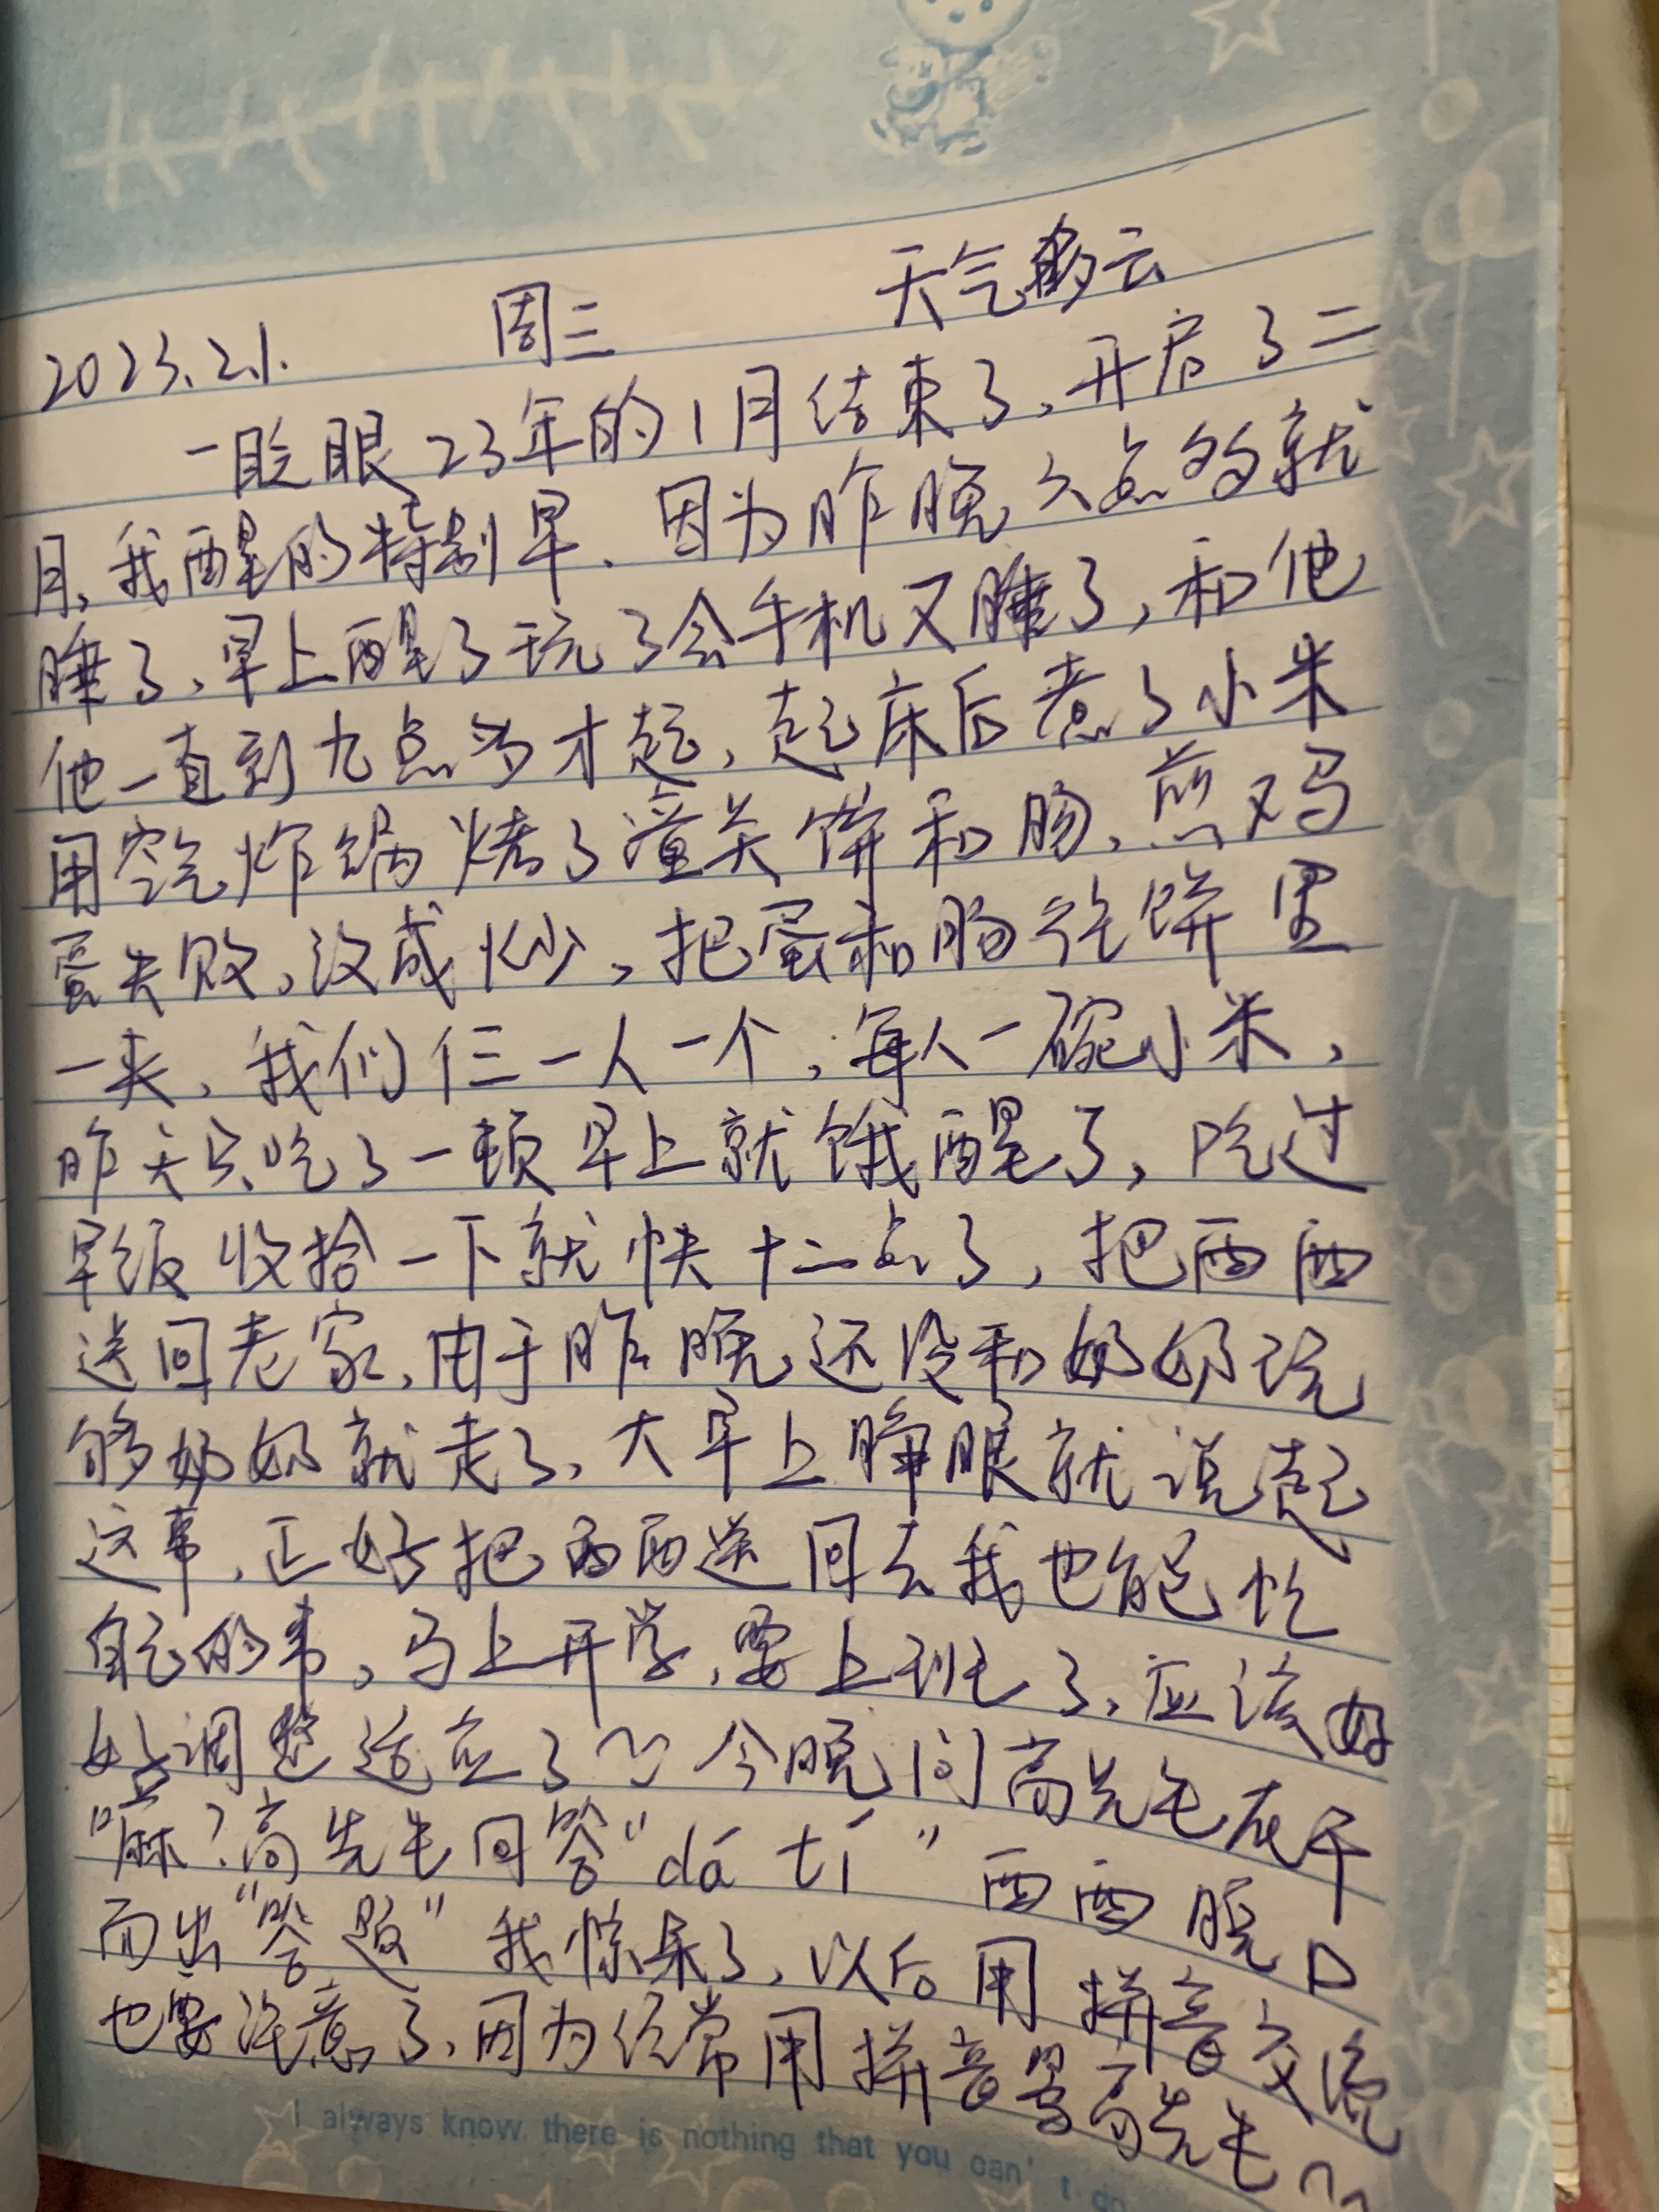 2023.2.1. 周三 天气多云
一眨眼23年的1月结束了,开启了二
月,我醒的特别早.因为昨晚六点多就
睡了,早上醒了玩了会手机又睡了,和他
他一直到九点半才起,起床后煮了小米
用空气炸锅烤了潼关饼和肠,煎鸡
蛋失败,没成炒,把蛋和肠往饼里
一夹,我们仨一人一个,每人一碗小米,
昨天只吃了一顿早上就饿醒了,吃过
早饭收拾一下就快十二点了,把西西
送回老家,由于昨晚还没和奶奶玩
够奶奶就走了,大早上睁眼就说起
这事,正好把西西送回去我也能忙
自己的事,马上开学,要上班了,应该好
好调整适应了 今晚问高先生在干
嘛?高先生回答"dá tí"西西脱口
而出"答题"我惊呆了,以后用拼音交流
也要注意了,因为经常用拼音骂高先生
I always know there is nothing that you can't do